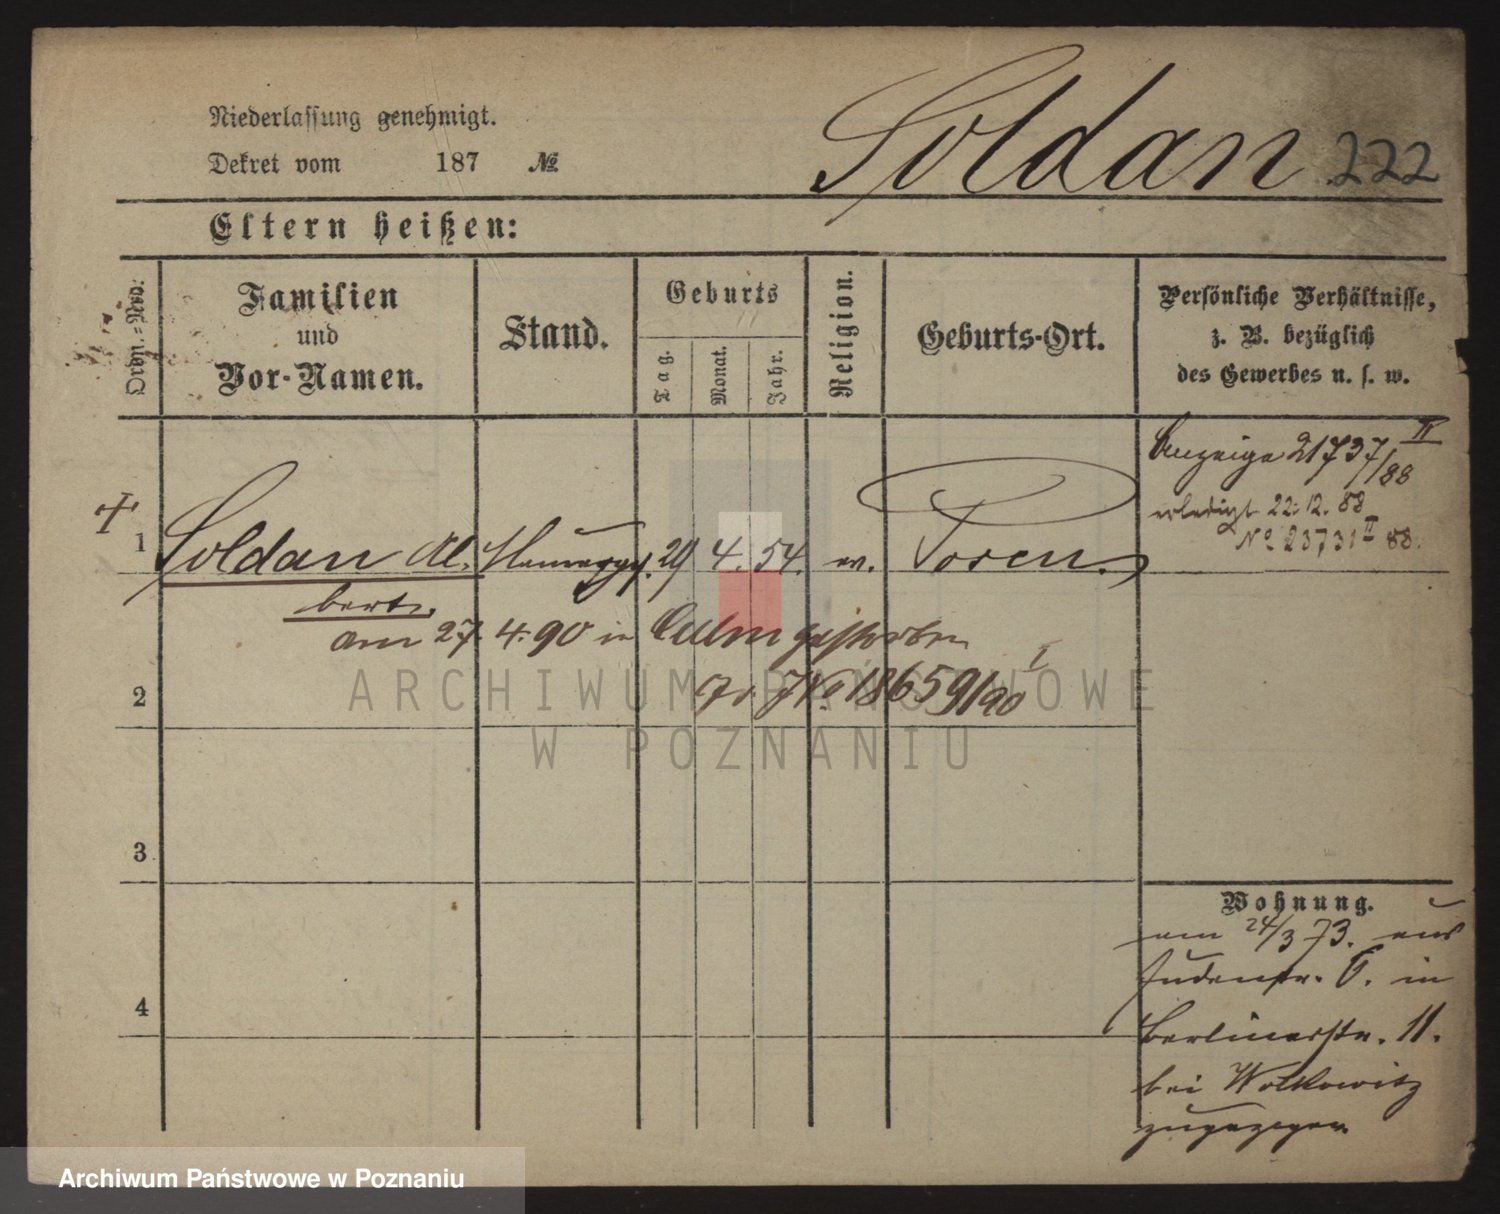 Niederlassung genehmigt.
Dekret vom 187 №
Soldan 222
Eltern heißen:
Ordn.=Nro:
Familien
und
Vor-Namen.
Stand.
Geburts
Tag.
Monat.
Jahr.
Religion.
Geburts-Ort.
Persönliche Verhältnisse,
z. B. bezüglich
des Gewerbes u. s. w.
Anzeige 21737/88 II
erledigt 22.12.88
No 23731 II 88.
1 Soldan Al, 29 4. 54. ev. Posen.
bert.
am 27. 4. 90 in Culm gestorben
2
JNo 18659/90 I
3
4
Wohnung.
am 24/3 73. aus
Judenstr. 6. in
Berlinerstr. 11.
bei Wolkowitz
zugezogen
ARCHIWUM PAŃSTWOWE
W POZNANIU
Archiwum Państwowe w Poznaniu